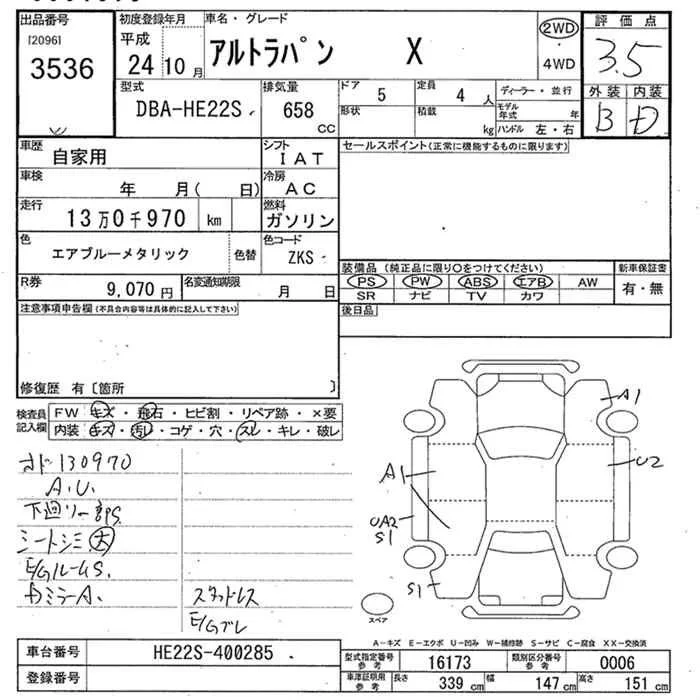 出品番号
[2096]
3536
初度登録年月
平成
24 10 月
車名・グレード
アルトラパン X
2WD
4WD
評価点
3.5
外装 内装
B D
型式
DBA-HE22S
排気量
658 cc
ドア
5
形状
定員
4 人
積載
kg
ディーラー・並行
モデル年式 年
ハンドル 左・右
車歴
自家用
シフト
IAT
セールスポイント(正常に機能するものに限ります)
車検
年 月( 日)
冷房
AC
走行
13万0千970 km
燃料
ガソリン
色
エアブルーメタリック
色替
色コード
ZKS
R券
9,070 円
名変通知期限
月 日
装備品(純正品に限り○をつけてください)
新車保証書
PS PW ABS エアB AW
有・無
SR ナビ TV カワ
注意事項申告欄(不具合内容等は具体的に記入して下さい)
後日品
修復歴 有〔箇所 〕
検査員記入欄
FW キズ・飛石・ヒビ割・リペア跡・×要
内装 キズ・汚レ・コゲ・穴・スレ・キレ・破レ
オド130970
A.U.
下廻リ一部S
シートシミ大
E/GルームS.
カミラーA.
スタッドレス
E/Gブレ
A1
A1
U2
UA2
S1
S1
スペア
A-キズ E-エクボ U-凹み W-補修跡 S-サビ C-腐食 XX-交換済
車台番号
HE22S-400285
型式指定番号 参考
16173
類別区分番号 参考
0006
登録番号
車庫証明用 参考
長さ 339 cm
幅 147 cm
高さ 151 cm